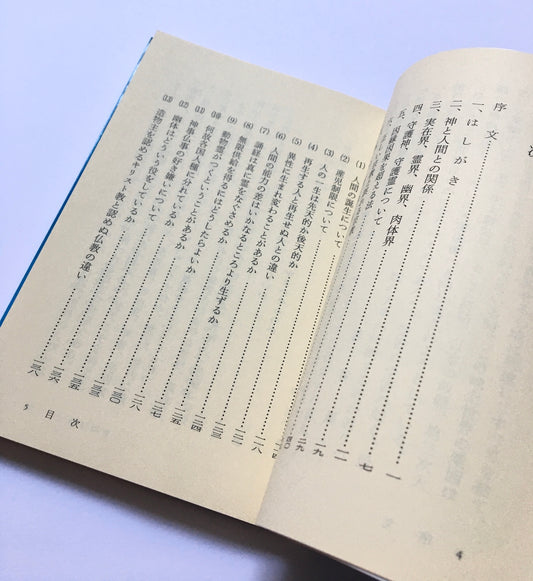 次
序文
一、はしがき……一
二、神と人間との関係……七
三、実在界、霊界、幽界、肉体界……一一
四、守護神、守護霊について……一九
五、因縁因果を超える法……二九
4
(1) 人間の誕生について
(2) 産児制限について……一一八
(3) 人の一生は先天的か後天的か……一二一
(4) 再生する人と再生せぬ人との違い……一二三
(5) 異性に生まれ変わることがあるか……一二四
(6) 人間の能力の差はいかなるところより生ずるか……一二五
(7) 誦経は真に霊をなぐさめるか……一二七
(8) を避けるにはどうしたらよいか……一二八
(9) 動物霊がつくということがあるか……一三〇
(10) 何故各国人種に分れているか……一三三
(11) 神事仏事の好き嫌いについて……一三五
(12) 幽体はどういう役をしているか……一三六
(13) 造物主を認めるキリスト教と認めぬ仏教の違い……一三八
5 目次